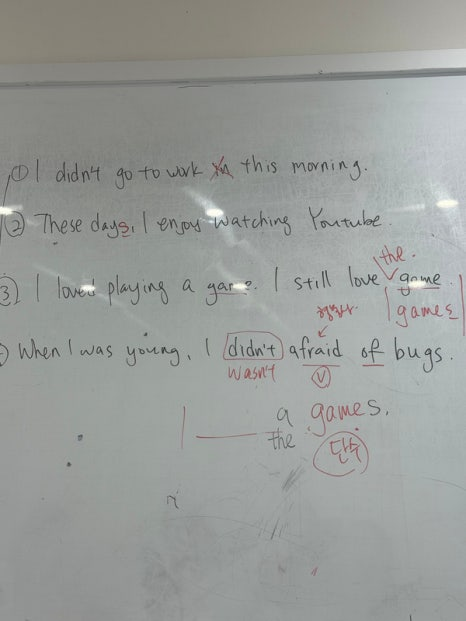 ① I didn't go to work in this morning.
② These days, I enjoy watching Youtube.
the.
③ I loved playing a game. I still love game.
games
형용사
When I was young, I didn't afraid of bugs.
wasn't
V
1 a games.
the 단수